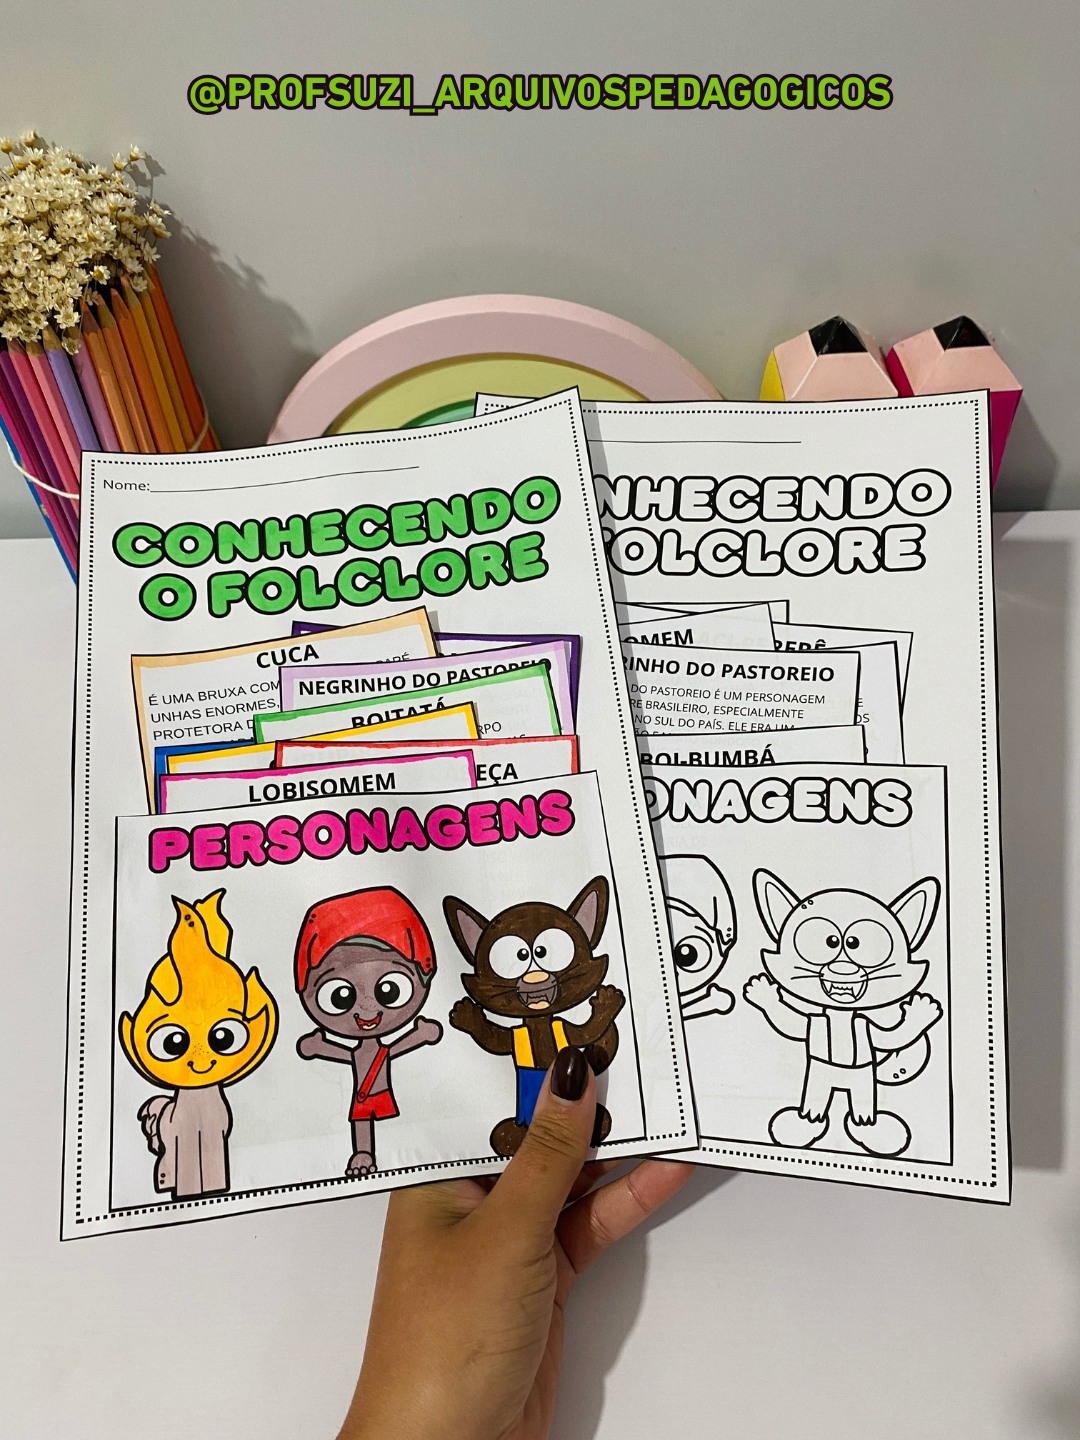 @PROFSUZI_ARQUIVOSPEDAGOGICOS
Nome:
CONHECENDO
O FOLCLORE
CUCA
É UMA BRUXA COM
UNHAS ENORMES,
PROTETORA
NEGRINHO DO PASTOREIO
BOITATÁ
LOBISOMEM
PERSONAGENS
NHECENDO
FOLCLORE
OMEM
RINHO DO PASTOREIO
DO PASTOREIO É UM PERSONAGEM
RE BRASILEIRO, ESPECIALMENTE
NO SUL DO PAÍS. ELE ERA UM
BOI-BUMBÁ
ONAGENS